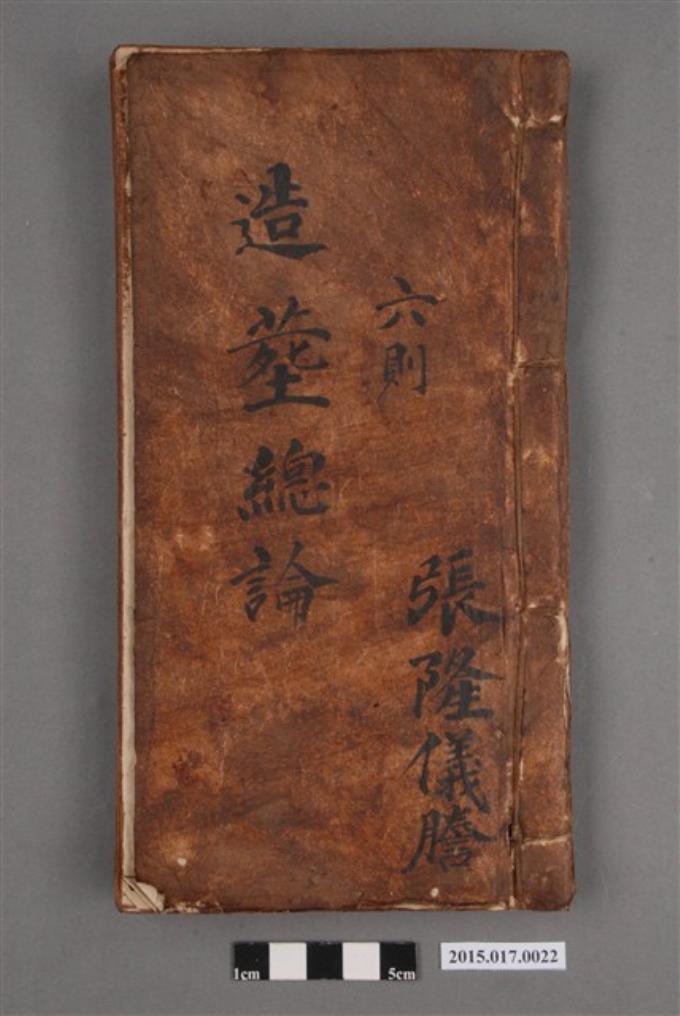 六則
張隆儀謄
造塟總論
1cm
5cm
2015.017.0022